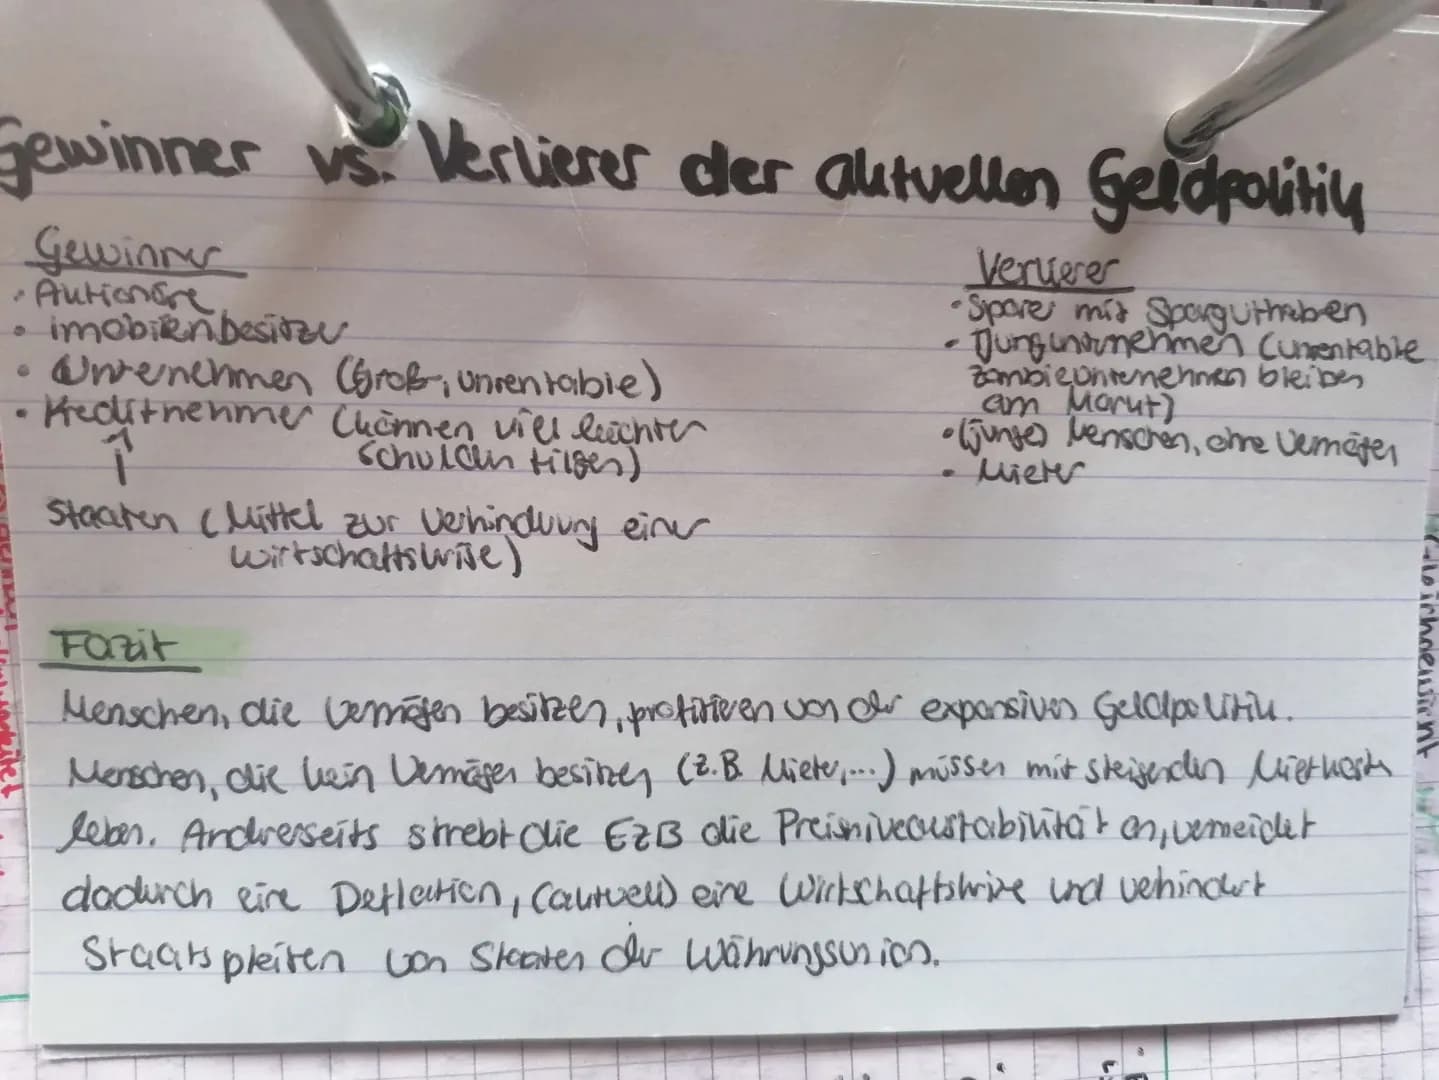 Gewinner vs. Verlierer der aktuellen Geldpolitik
Gewinner
• Aktionäre
• imobilienbesitzer
• Unternehmen (Groß, unrentable)
• Kreditnehmer (können viel leichter
Schulden tilgen)
↑
Staaten (Mittel zur Verhinderung einer
Wirtschaftskrise)
Verlierer
• Sparer mit Sparguthaben
• Jungunternehmen (unrentable
Zombieunternehmen bleiben
am Markt)
• (junge) Menschen, ohne Vermögen
• Mieter
Fazit
Menschen, die Vermögen besitzen, profitieren von der expansiven Geldpolitik.
Menschen, die kein Vermögen besitzen (z.B. Mieter,...) müssen mit steigenden Mietkosten
leben. Andrerseits strebt die EZB die Preisniveaustabilität an, vermeidet
dadurch eine Deflation, (aktuell) eine Wirtschaftskrise und verhindert
Staatspleiten von Staaten der Währungsunion.